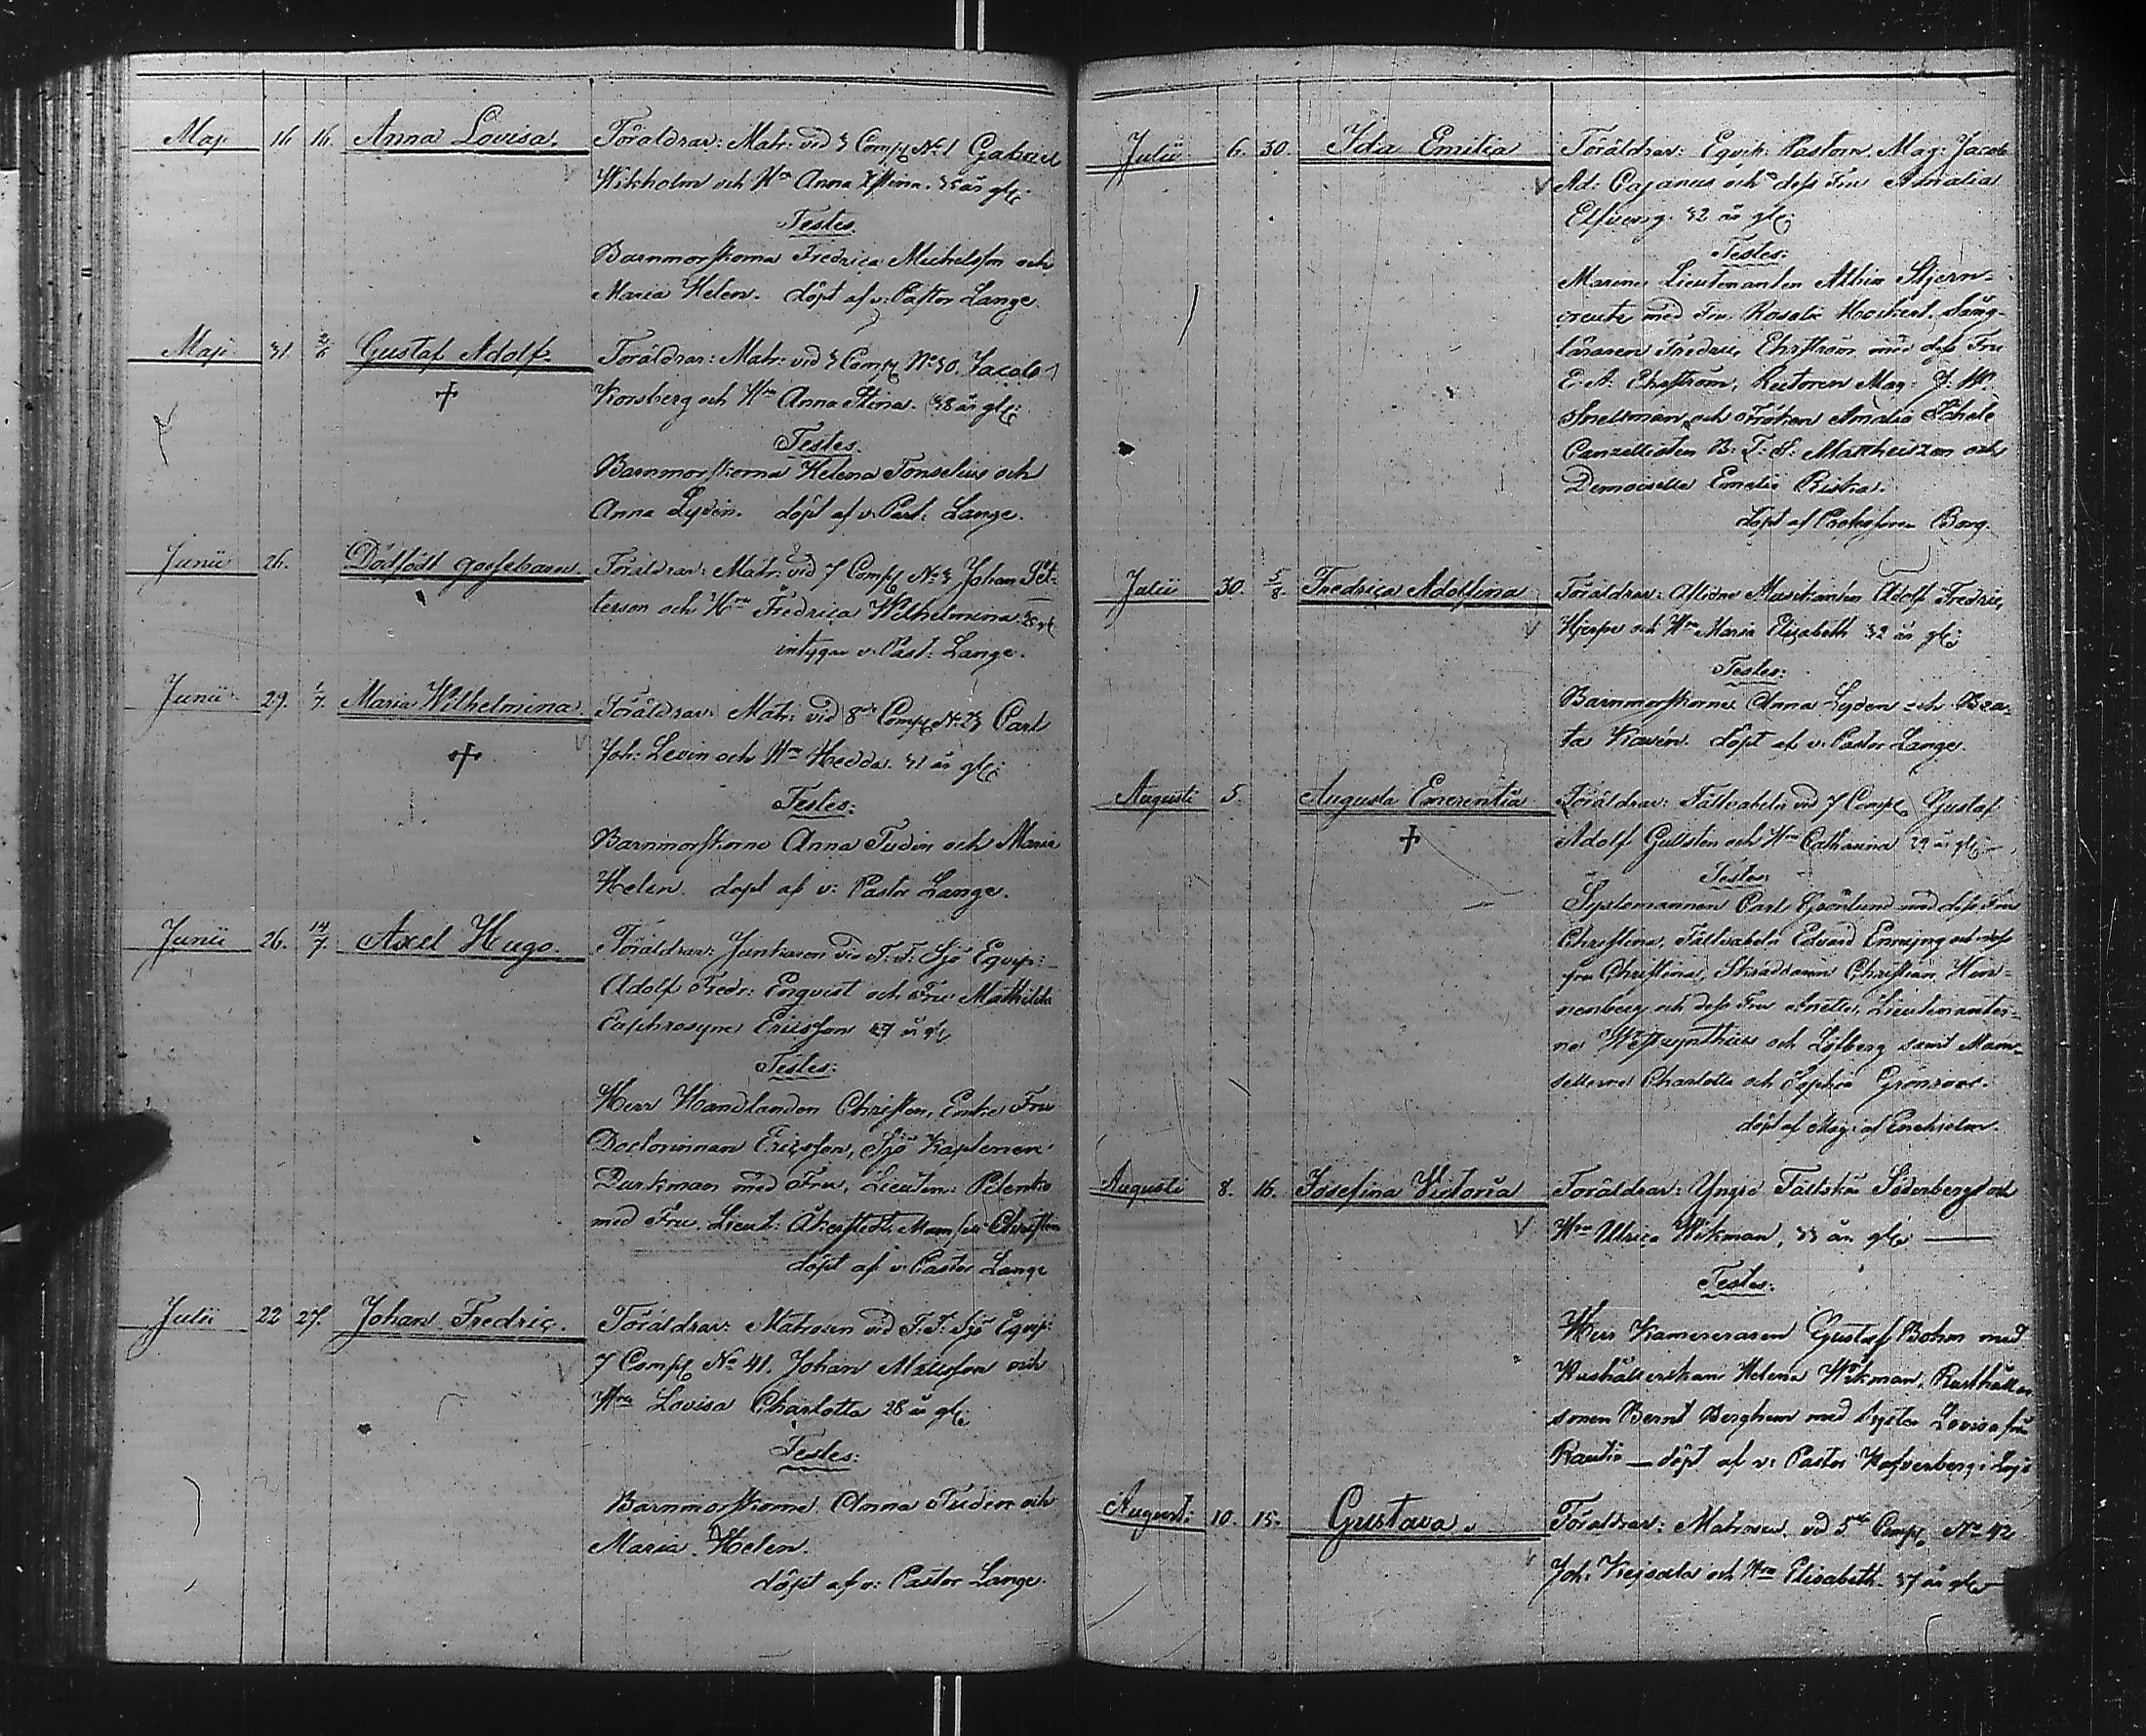 Maji 16 16. Anna Lovisa. Föräldrar: Matr: vid 3 Comp. No 1 Gabriel
Wikholm och H:n Anna Stina. 35 år gl:
Testes.
Barnmorskorna Fredrica Michelsson och
Maria Helen. döpt af v: Pastor Lange.
Maji 31 2/6 Gustaf Adolf. Föräldrar: Matr: vid 3 Comp. No 30. Jacob
Korsberg och H:n Anna Stina. 38 år gl:
Testes.
Barnmorskorna Helena Fonselius och
Anna Lyden. döpt af v. Past: Lange.
Junii 26. Dödfödt gossebarn. Föräldrar: Matr: vid 7 Comp. No 3 Johan Pet-
terson och H:ru Fredrica Wilhelmina
intygar v. Past: Lange.
Junii 29. 1/7. Maria Wilhelmina. Föräldrar: Matr: vid 8de Comp. No 33 Carl
Joh: Levin och H:n Hedda. 31 år gl:
Testes:
Barnmorskorne Anna Tudin och Maria
Helen. döpt af v: Pastor Lange.
Junii 26. 14/7. Axel Hugo. Föräldrar: Junkaren vid F. F. Sjö Equip:
Adolf Fredr: Enqvist och Fru Mathilda
Euphrosyne Ericsson 27 år gl:
Testes:
Herr Handlanden Christen, Enke Fru
Doctorinnan Ericsson, Sjö Kaptenen
med Fru, Lieuten:
med Fru. Lieut: Åkerstedt,
döpt af v: Pastor Lange
Julii 22 27. Johan Fredric. Föräldrar: Matrosen vid F. F. Sjö Equip:
7 Comp. No 41. Johan och
H:ru Lovisa Charlotta 28 år gl:
Testes:
Barnmorskorne Anna Tudin och
Maria Helen.
döpt af v: Pastor Lange.
Julii 6. 30. Ida Emilia Föräldrar: Equip. Pastorn. Mag: Jacob
Ad: Cajanus och dess Fru Amalia
Elfving. 32 år gl:
Testes:
Marine Lieutenanten Stjern-
creutz med Fru Rosalie Hockert, Sång-
läraren Fredric Ehrström med dess Fru
E. A. Ehrström, Rectoren Mag: J. W.
Snellman och Fröken Amalia
Canzellisten B. F. S. Mattheiszen och
Demoiselle Emelie
döpt af Professoren Borg.
Julii 30. 5/8. Fredrica Adolfina Föräldrar: Aflidne Musikanten Adolf Fredric
Hjerpe och H:ru Maria Elisabeth 32 år gl:
Testes:
Barnmorskorne Anna Lyden och Bea-
ta döpt af v: Pastor Lange.
Augusti 5. Augusta Emerentia Föräldrar: Fältvabeln vid 7 Comp. Gustaf
Adolf Gullsten och H:ru Catharina 29 år gl:
Testes:
Systemannen Carl Grönlund med dess Fru
Christina, Fältvabeln Edvard och dess
fru Christina, Skräddaren Christian
nenberg och dess Fru Anette, Lieutenanter-
ne och Löfberg samt Mam-
sellerne Charlotta och Sophia Grönroos.
döpt af Mag: af Enehjelm.
Augusti 8. 16. Josefina Victoria Föräldrar: Yngre Fältskär Söderberg och
H:ru Ulrica Wikman, 33 år gl:
Testes:
Herr Kamereraren Gustaf Bohm med
Hushållerskan Helena Wikman, Rusthållar
sonen Bernt Berghem med syster Lovisa från
döpt af v: Pastor Hofverberg i Lojo
August: 10. 15. Gustava Föräldrar: Matrosen vid 5te Comp. No 42
Joh: och H:ru Elisabeth. 37 år gl: